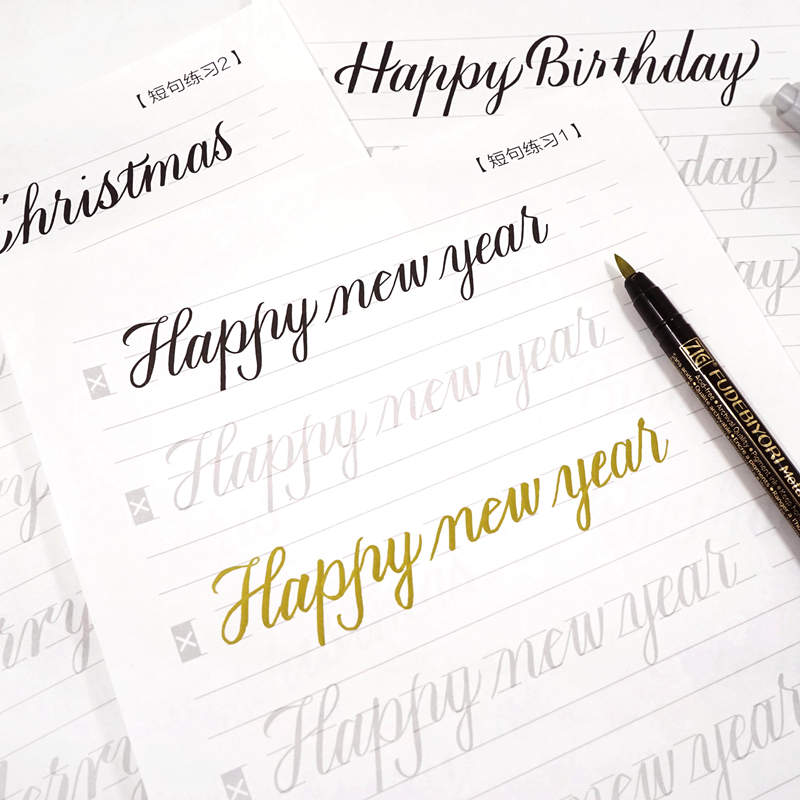 Happy Birthday
day
day
【短句练习2】
Christmas
【短句练习1】
Happy new year
Happy new year
Happy new year
Happy new year
new year
erry
erry
erry
ZIG FUDEBIYORI Meta